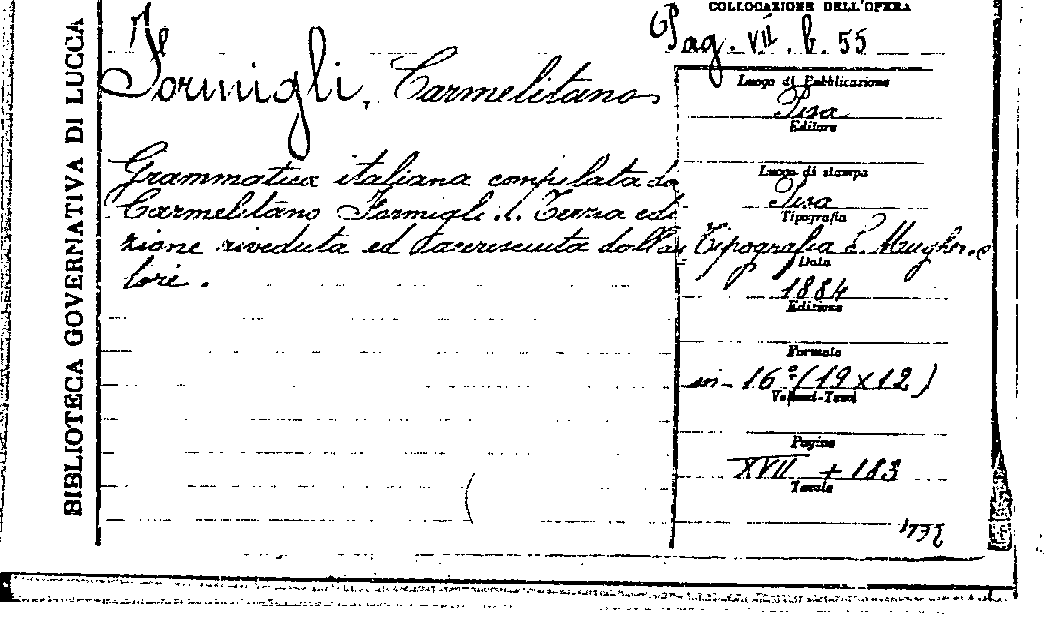 BIBLIOTECA GOVERNATIVA DI LUCCA
COLLOCAZIONE DELL'OPERA
Pag. VII. b. 55
Formigli, Carmelitano
Grammatica italiana compilata da
Carmelitano Formigli... Terza edi
zione riveduta ed accresciuta dall'au
tore.
Luogo di Pubblicazione
Pisa
Editore
Luogo di stampa
Pisa
Tipografia
Tipografia
Data
1884
Edizione
Formato
in-16° (19x12)
Volumi-Tomi
Pagine
XVII + 183
Tavole